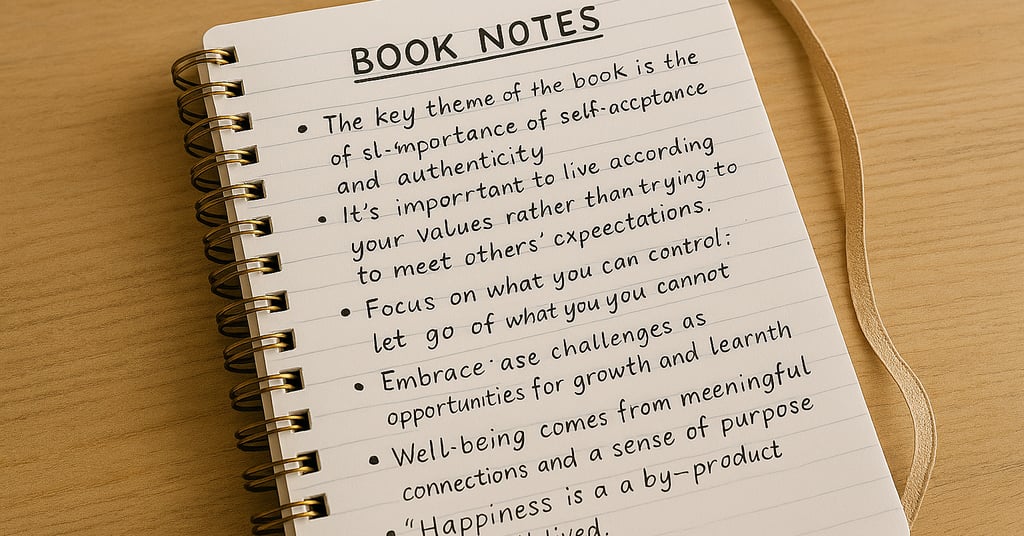 BOOK NOTES
• The key theme of the book is the
of sl-importance of self-accptance
and authenticity
• It's imporrtant to live according
your values rather than trying to
to meet others' cxpeectations.
• Focus on what you can control:
let go of what you you cannot
• Embrace ase challenges as
opportunities for growth and learnth
• Well-being comes from meeningful
connections and a sense of purpose
• "Happiness is a a by-product
lived.